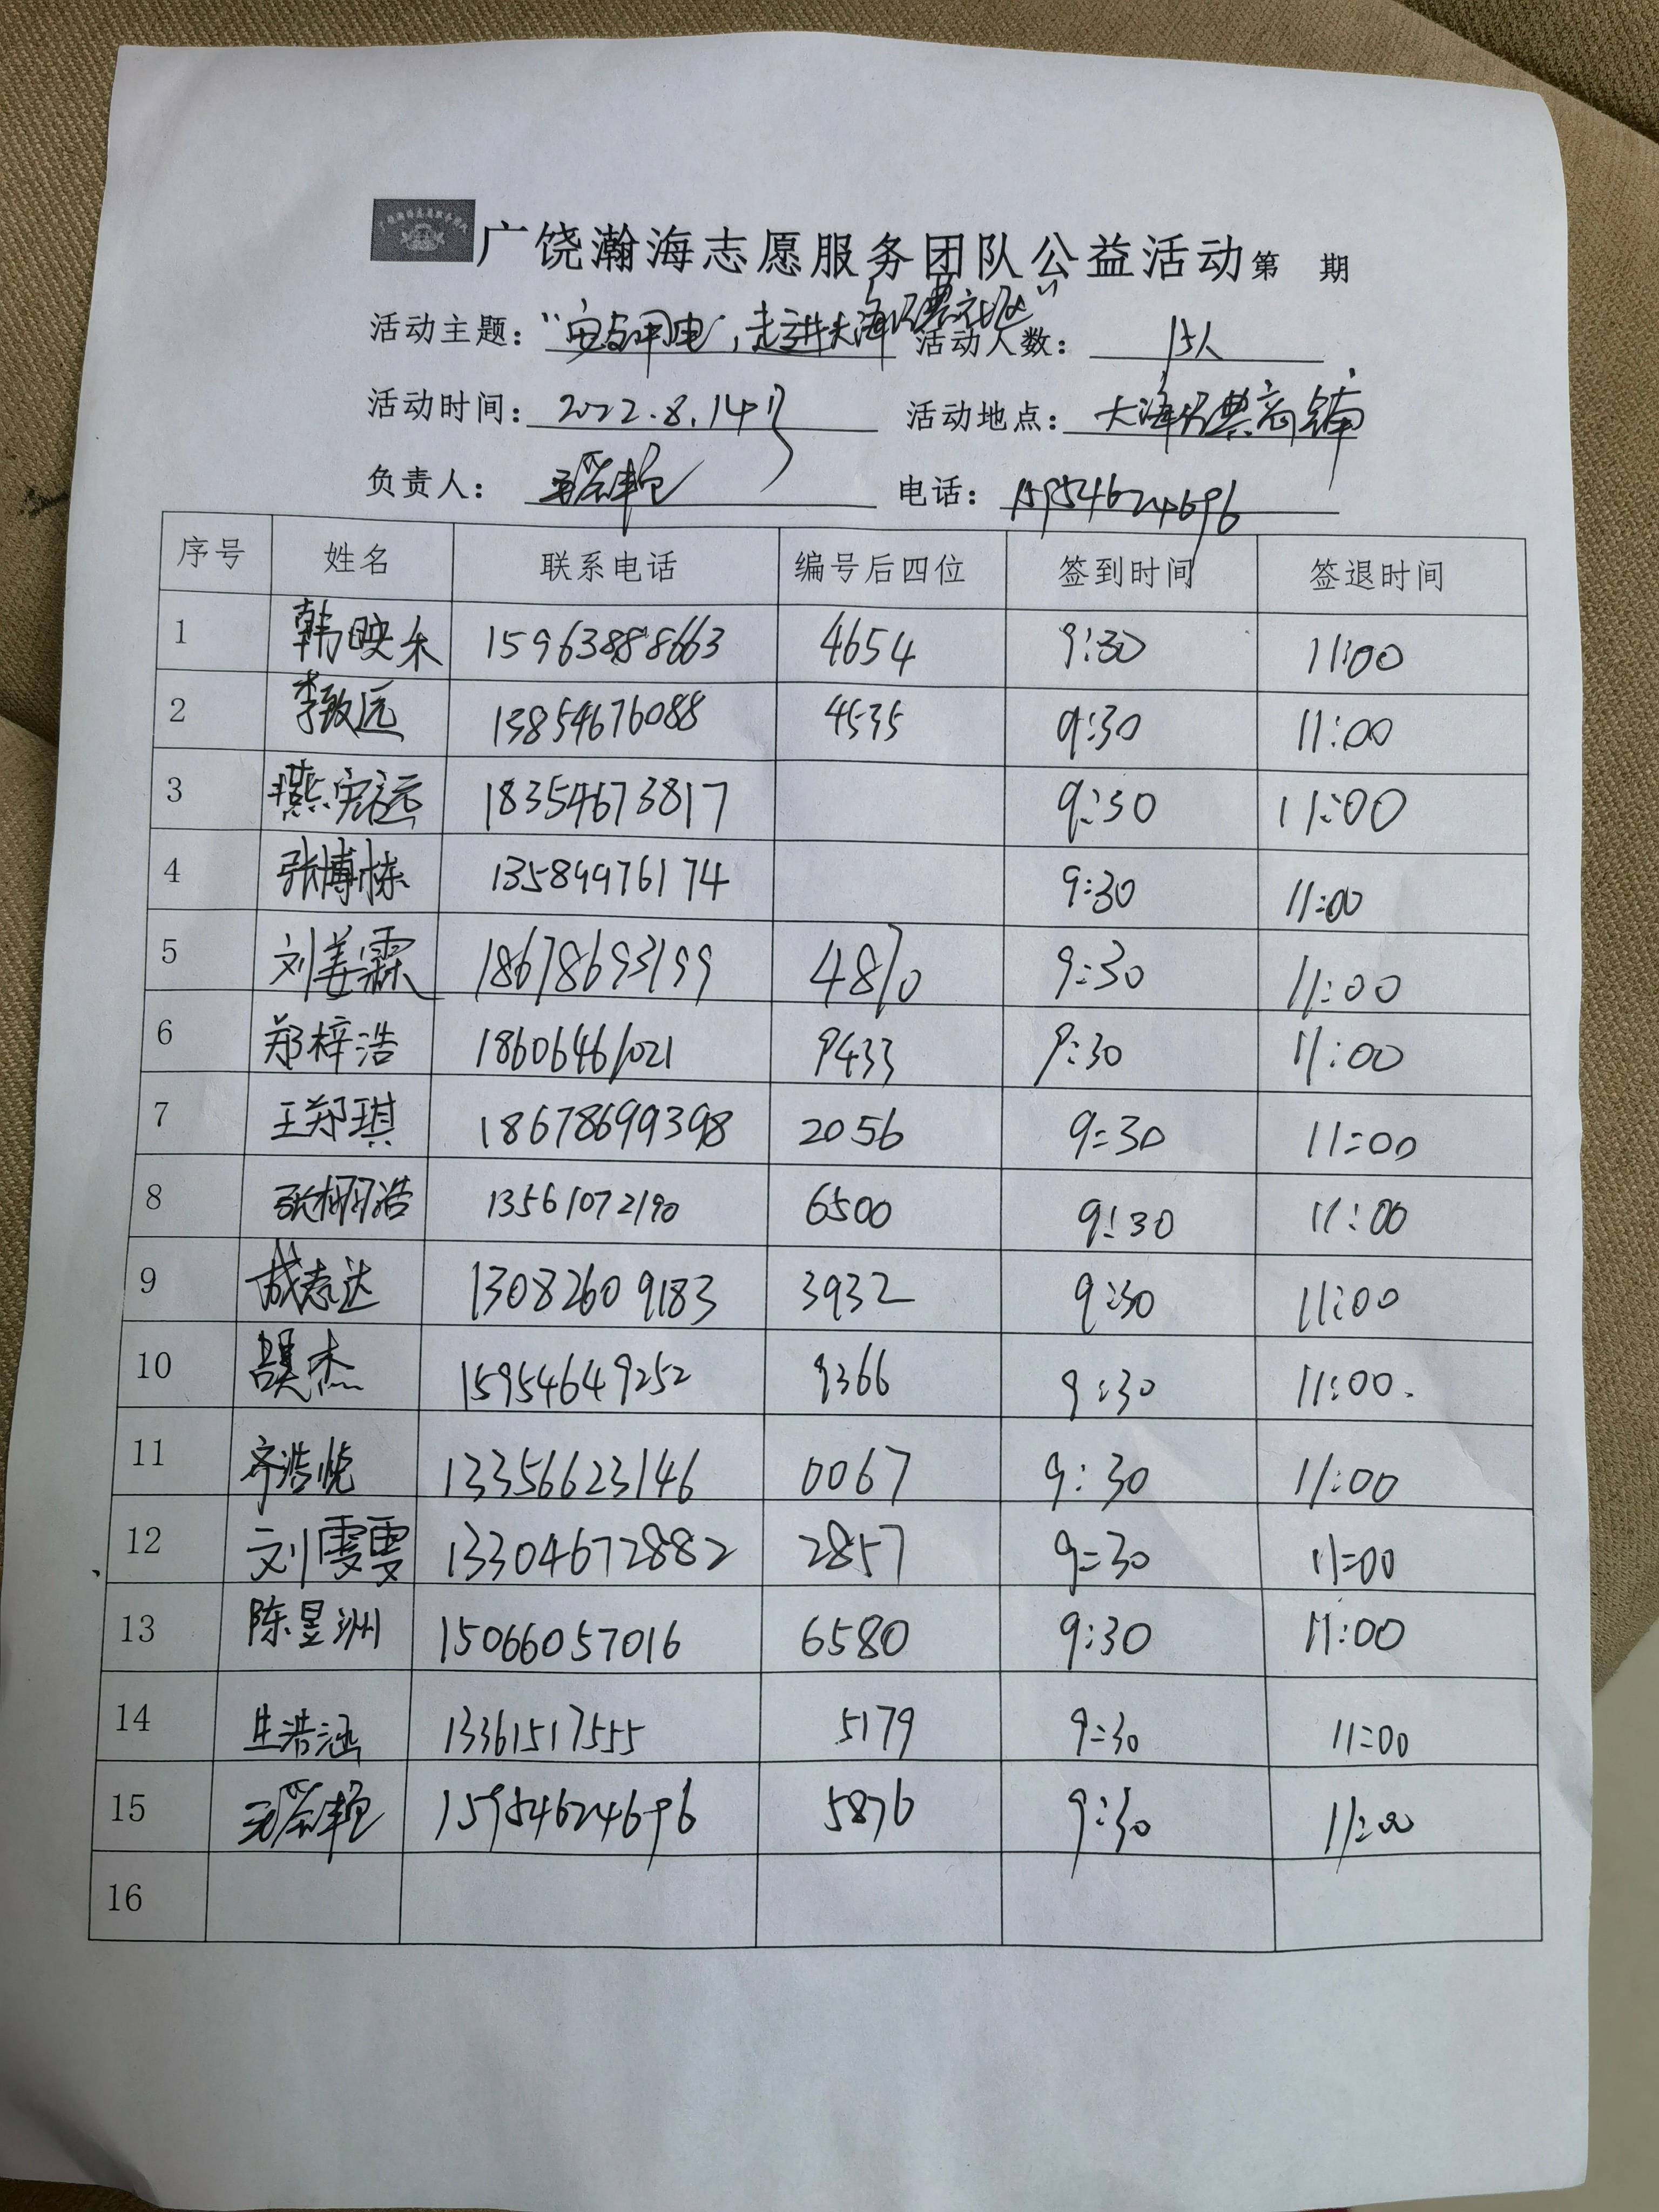 广饶瀚海志愿服务团队公益活动第 期
活动主题：“安全用电，走进大海经典社区” 活动人数： 15人
活动时间：2022.8.14号 活动地点：大海经典商铺
负责人： 电话：15954624696
序号 姓名 联系电话 编号后四位 签到时间 签退时间
1 韩映禾 15963888663 4654 9:30 11:00
2 李致远 13854676088 4535 9:30 11:00
3 燕宏远 18354673817 9:30 11:00
4 张博栋 13589976174 9:30 11:00
5 刘姜霖 18678693199 4870 9:30 11:00
6 郑梓浩 18606461021 9433 9:30 11:00
7 王郑琪 18678699398 2056 9:30 11:00
8 张栩浩 13561072190 6500 9:30 11:00
9 成志达 13082609183 3932 9:30 11:00
10 杰 15954649252 9366 9:30 11:00.
11 齐浩悦 13356623146 0067 9:30 11:00
12 刘雯雯 13304672882 2857 9:30 11:00
13 陈昱洲 15066057016 6580 9:30 11:00
14 生浩涵 13361517555 5179 9:30 11:00
15 15954624696 5876 9:30 11:00
16